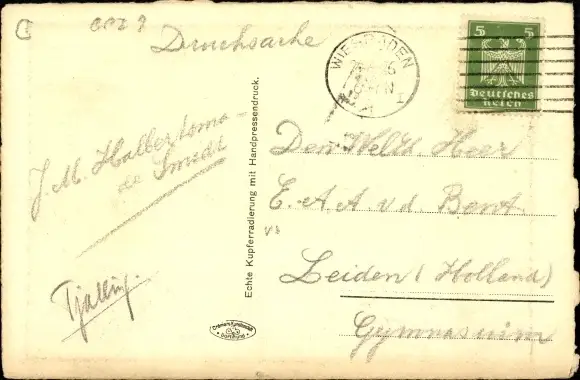 Drucksache
WIESBADEN
5 5
Deutsches
Reich
J. M. Halbertsma -
de Smidt
Tjalling.
Echte Kupferradierung mit Handpressendruck.
Den WelEd Heer
E. A. A v. d. Bent
Leiden (Holland)
Gymnasium